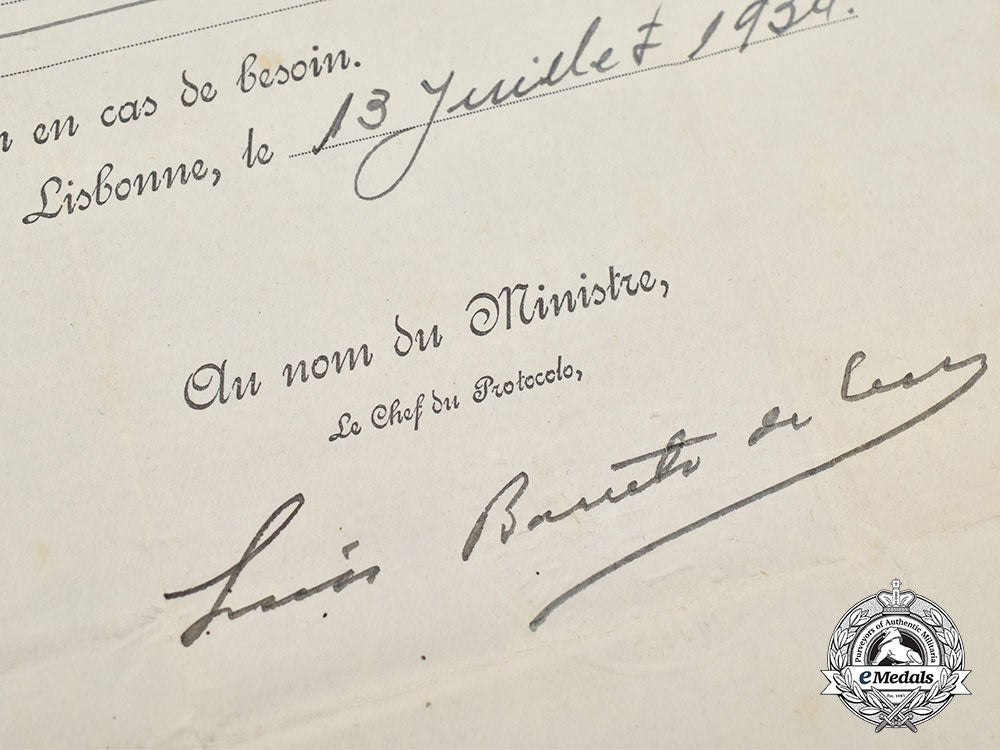 en cas de besoin.
Lisbonne, le 13 Juillet 1934.
Au nom du Ministre,
Le Chef du Protocolo,
Luís Barreto de
Purveyors of Authentic Militaria
eMedals